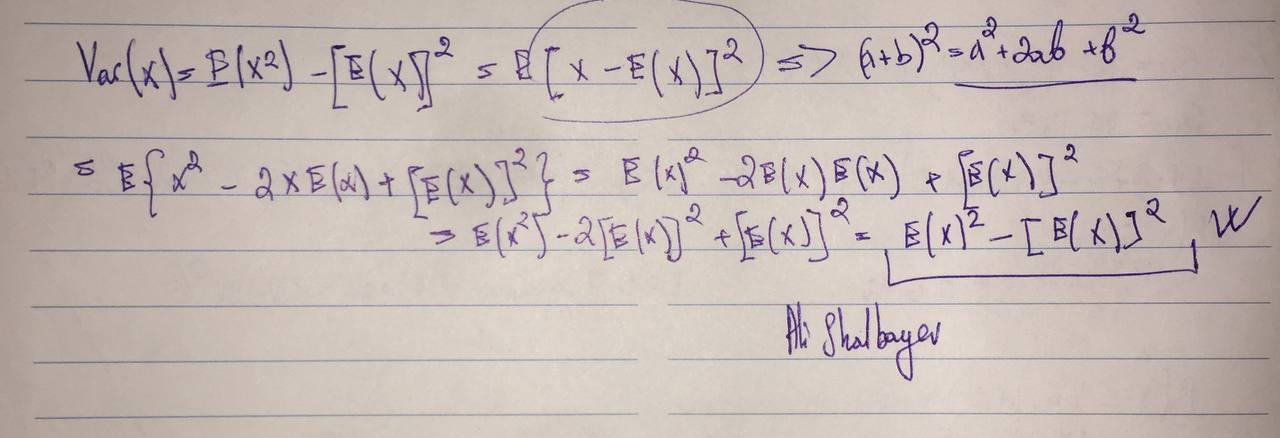 Var(X) = E(X²) - [E(X)]² = E[X - E(X)]² => (a+b)² = a² + 2ab + b²
= E{X² - 2XE(X) + [E(X)]²} = E(X)² - 2E(X)E(X) + [E(X)]²
= E(X²) - 2[E(X)]² + [E(X)]² = E(X)² - [E(X)]²
Ali Shalbayev